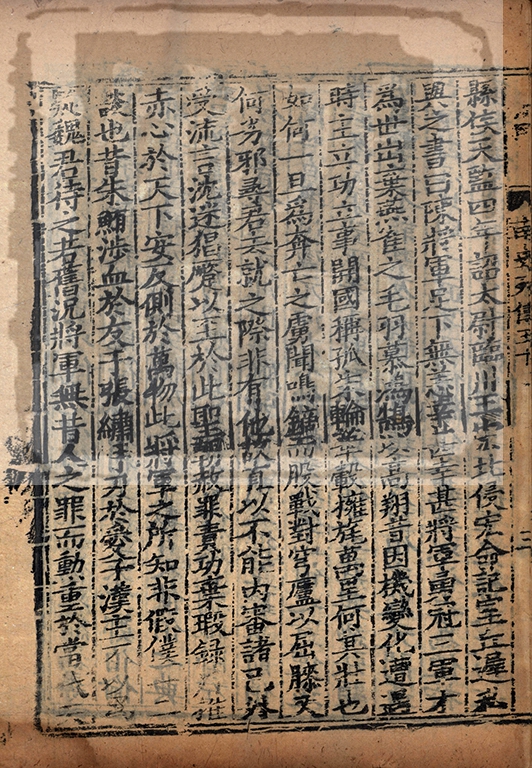 縣侯天監四年詔太尉臨川王宏北侵宏命記室丘遲私
與之書曰陳將軍足下無恙幸甚將軍勇冠三軍才
為世出棄燕雀之毛羽慕鴻鵠以高翔昔因機變化遭遇
時主立功立事開國稱孤朱輪華轂擁旄萬里何其壯也
如何一旦為奔亡之虜聞鳴鏑而股戰對穹廬以屈膝又
何劣邪尋君去就之際非有他故直以不能內審諸己外
受流言沈迷猖蹶以至於此聖朝赦罪責功棄瑕錄用推
赤心於天下安反側於萬物此將軍之所知非假僕一二
談也昔朱鮪涉血於友于張繡剚刃於愛子漢主不以為
疑魏君待之若舊況將軍無昔人之罪而勳重於當代
南史列傳五十